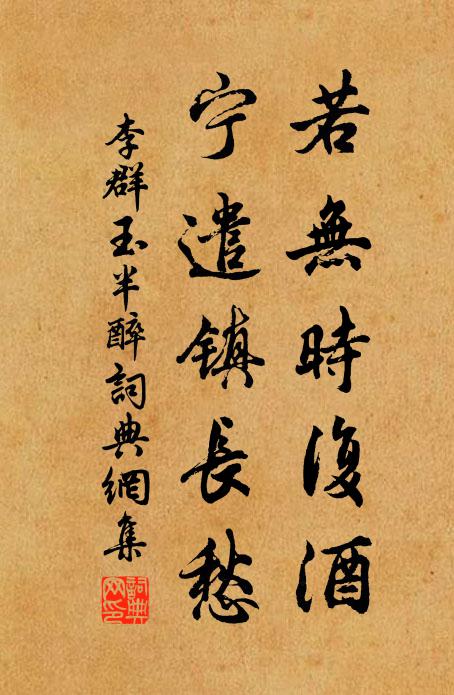 若無時復酒
宁遣镇長愁
李群玉半醉詞典網集
詞典網印